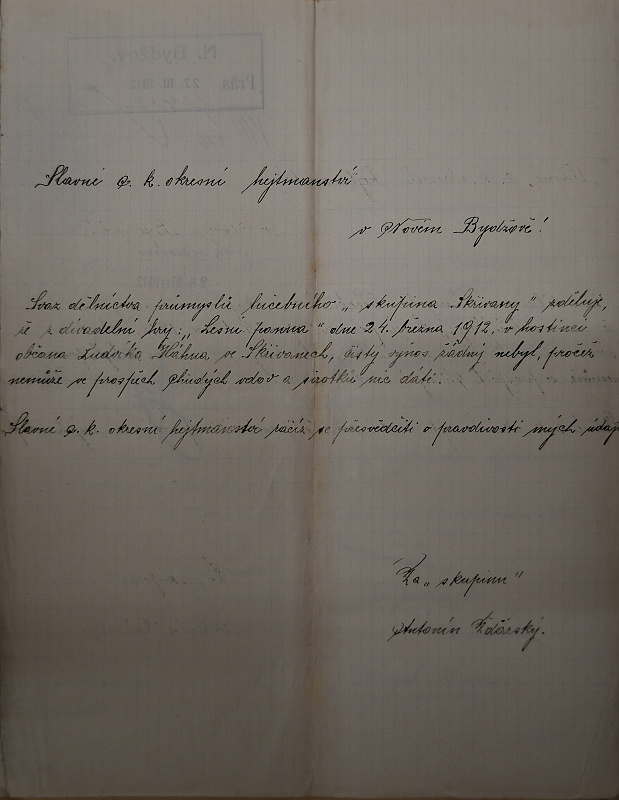 Slavné c. k. okresní hejtmanství
v Novém Bydžově!
Svaz dělnictva průmyslu lučebního „skupina Skřivany" sděluje,
že z divadelní hry: „Lesní panna" dne 24. března 1912, v hostinci
občana Ludvíka Hláhna, ve Skřivanech, čistý výnos žádný nebyl, pročež
nemůže ve prospěch chudých vdov a sirotků nic dáti.
Slavné c. k. okresní hejtmanství račiž se přesvědčiti o pravdivosti mých údaj
Za „skupinu"
Antonín Žďárský.
N. Bydžov.
1912